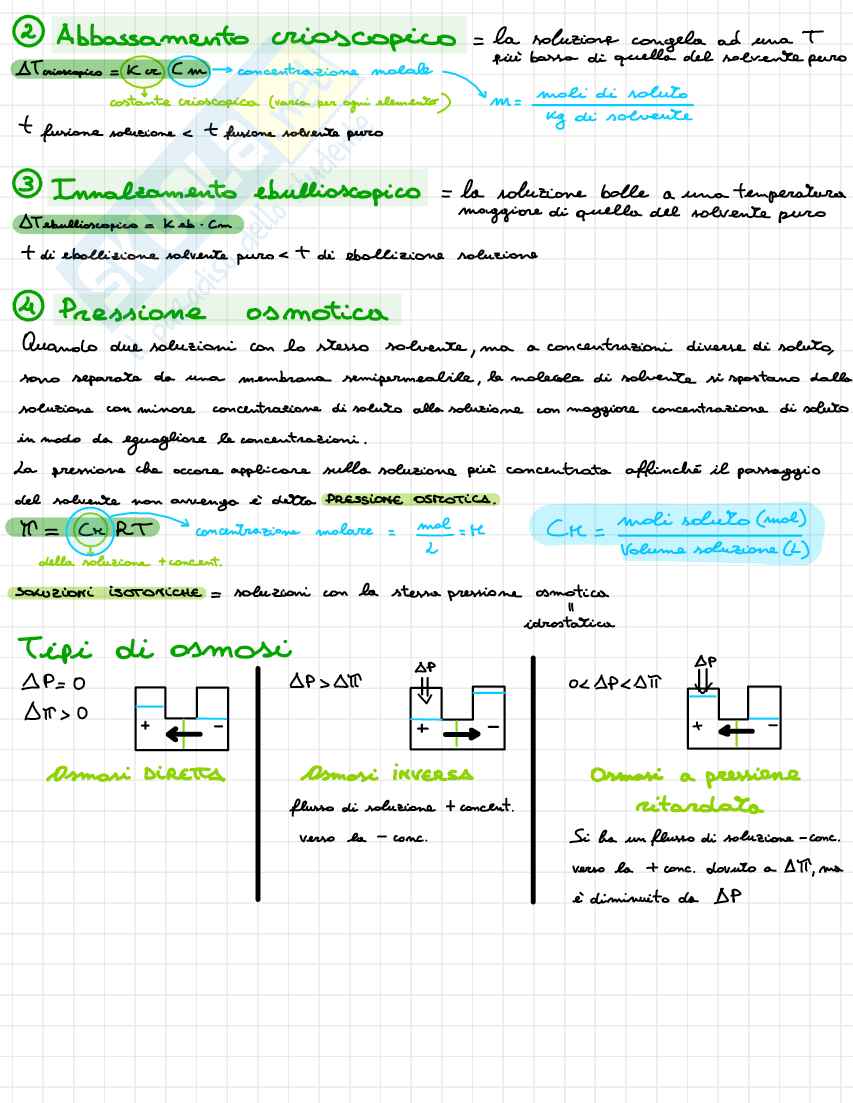 ② Abbassamento crioscopico = la soluzione congela ad una T
più bassa di quella del solvente puro
ΔTcrioscopico = Kcr Cm → concentrazione molale
costante crioscopica (varia per ogni elemento)
m = moli di soluto / kg di solvente
t fusione soluzione < t fusione solvente puro
③ Innalzamento ebullioscopico = la soluzione bolle a una temperatura
maggiore di quella del solvente puro
ΔTebullioscopico = Keb · Cm
t di ebollizione solvente puro < t di ebollizione soluzione
④ Pressione osmotica
Quando due soluzioni con lo stesso solvente, ma a concentrazioni diverse di soluto,
sono separate da una membrana semipermeabile, le molecole di solvente si spostano dalla
soluzione con minore concentrazione di soluto alla soluzione con maggiore concentrazione di soluto
in modo da eguagliare le concentrazioni.
La pressione che occore applicare sulla soluzione più concentrata affinché il passaggio
del solvente non avvenga è detta PRESSIONE OSMOTICA.
π = CM RT → concentrazione molare = mol / L = M
CM = moli soluto (mol) / Volume soluzione (L)
della soluzione + concent.
SOLUZIONI ISOTONICHE = soluzioni con la stessa pressione osmotica
=
idrostatica
Tipi di osmosi
ΔP = 0
Δπ > 0
+ -
Osmosi DIRETTA
ΔP > Δπ
ΔP
+ -
Osmosi INVERSA
flusso di soluzione + concent.
verso la - conc.
0 < ΔP < Δπ
ΔP
+ -
Osmosi a pressione
ritardata
Si ha un flusso di soluzione - conc.
verso la + conc. dovuto a Δπ, ma
è diminuito da ΔP
SKUOLA.net
il paradiso dello studente